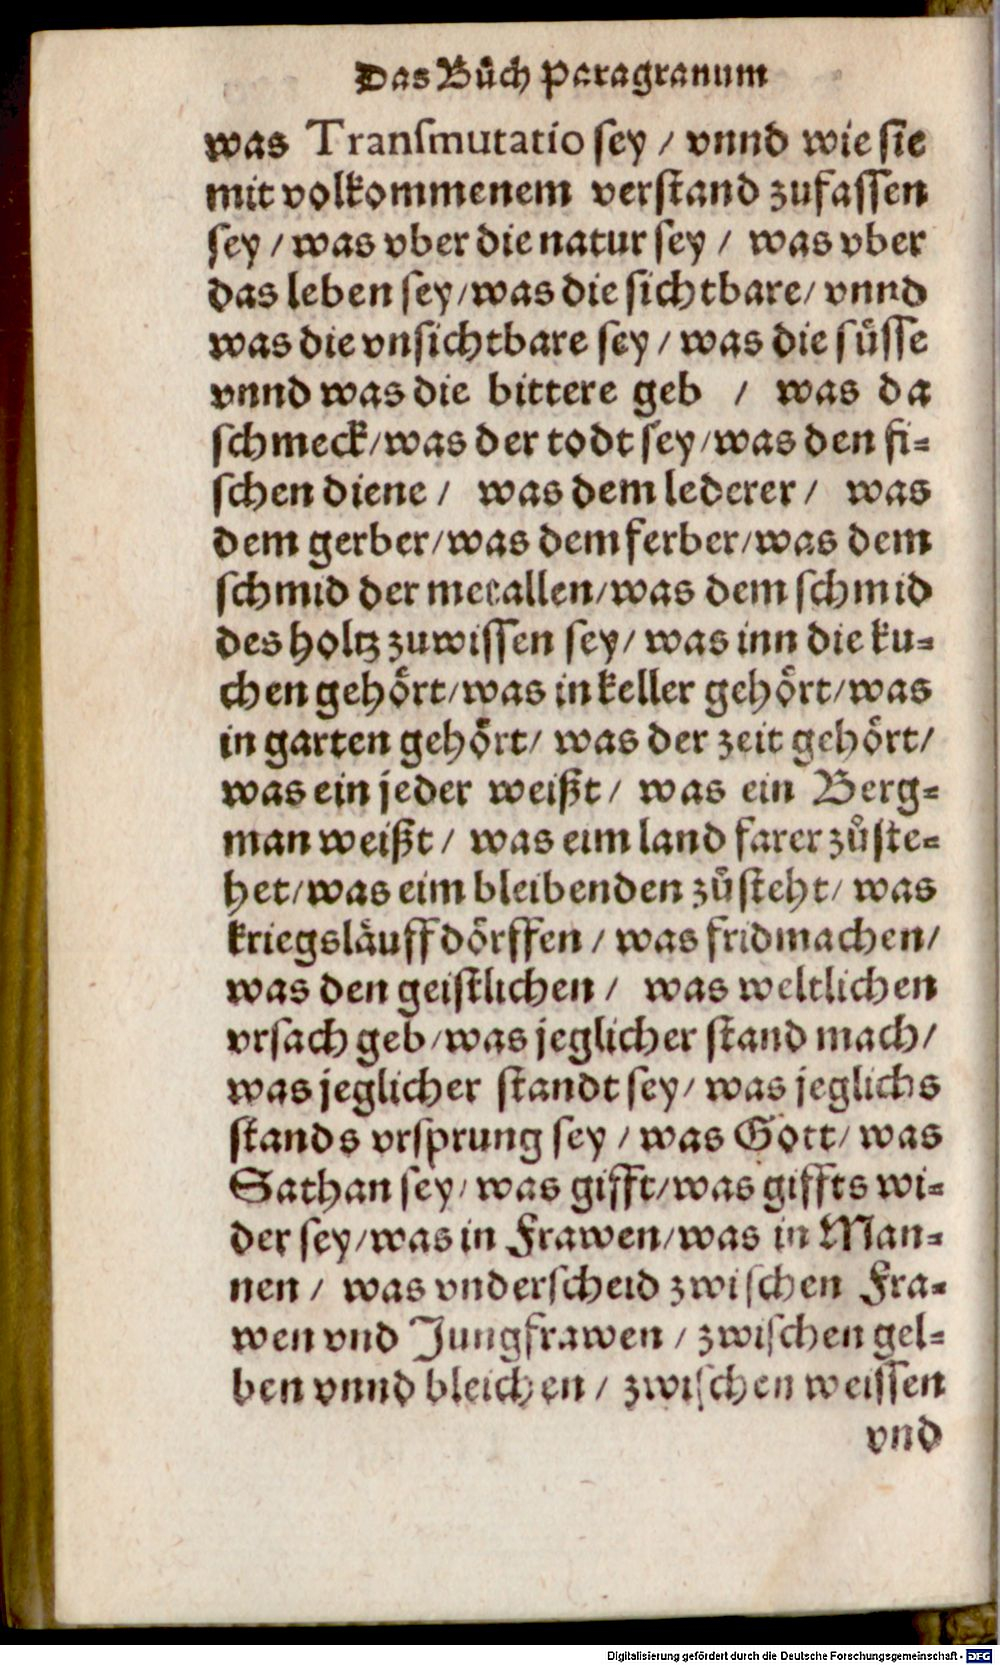 Das Bůch Paragranum
was Transmutatio sey / vnnd wie sie
mit volkommenem verstand zufassen
sey / was vber die natur sey / was vber
das leben sey / was die sichtbare / vnnd
was die vnsichtbare sey / was die süsse
vnnd was die bittere geb / was da
schmeck / was der todt sey / was den fi-
schen diene / was dem lederer / was
dem gerber / was dem ferber / was dem
schmid der metallen / was dem schmid
des holtz zuwissen sey / was inn die ku-
chen gehört / was in keller gehört / was
in garten gehört / was der zeit gehört /
was ein jeder weißt / was ein Berg-
man weißt / was eim land farer zůste-
het / was eim bleibenden zůsteht / was
kriegsläuff dörffen / was fridmachen /
was den geistlichen / was weltlichen
vrsach geb / was jeglicher stand mach /
was jeglicher standt sey / was jeglichs
stands vrsprung sey / was Gott / was
Sathan sey / was gifft / was giffts wi-
der sey / was in Frawen / was in Man-
nen / was vnderscheid zwischen Fra-
wen vnd Jungfrawen / zwischen gel-
ben vnnd bleichen / zwischen weissen
vnd
Digitalisierung gefördert durch die Deutsche Forschungsgemeinschaft - DFG